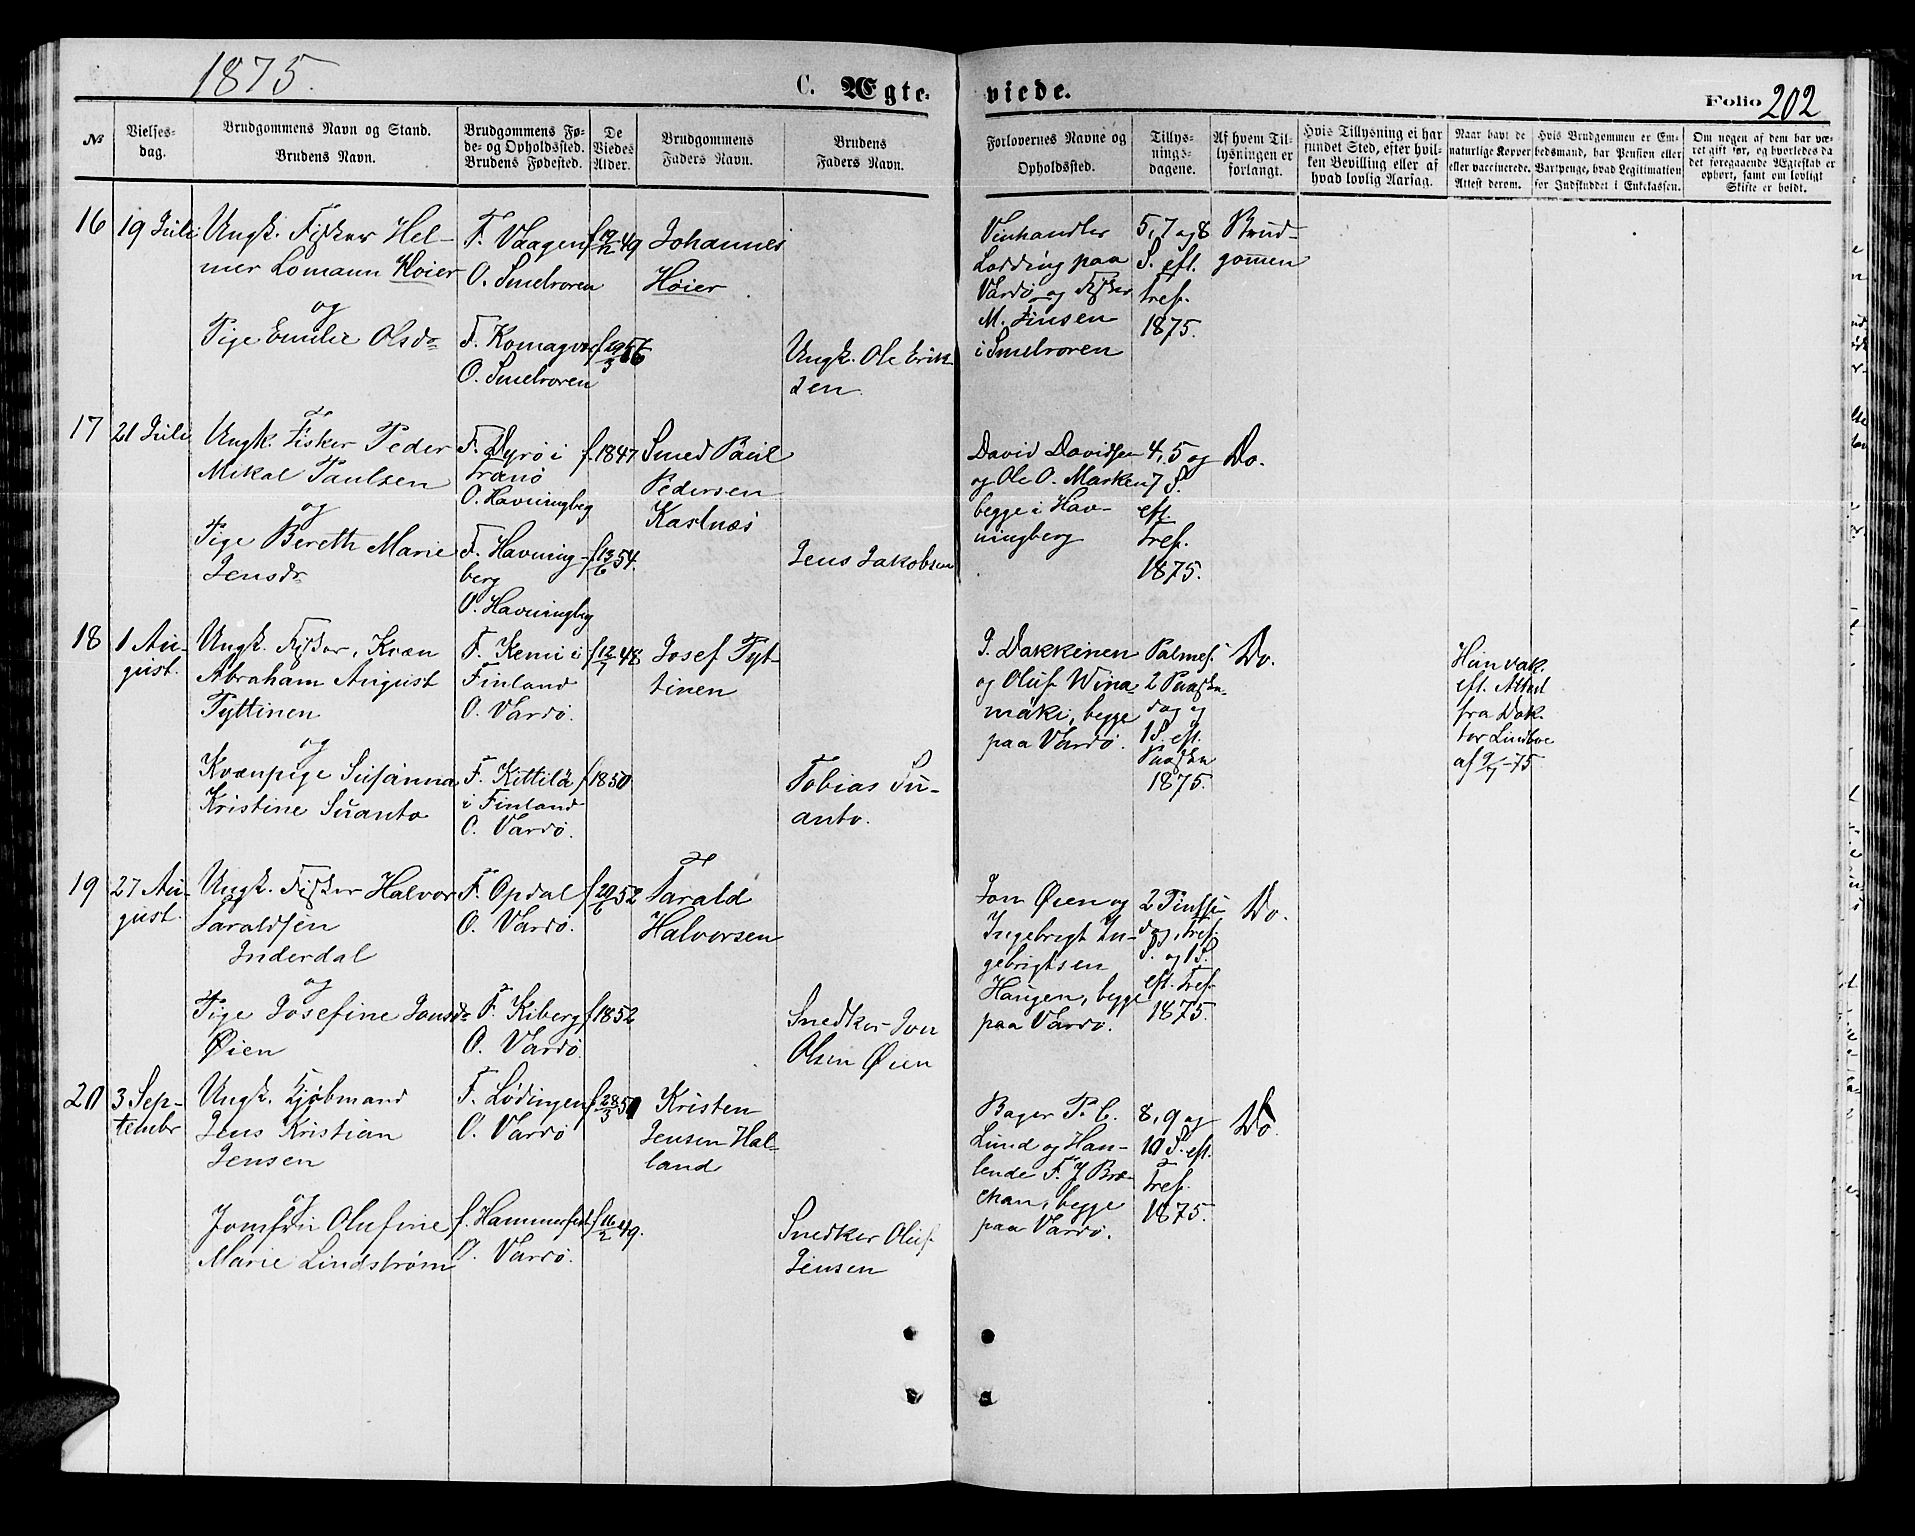 1875.
C. Ægte-
viede.
Folio 202
No
Vielses-
dag.
Brudgommens Navn og Stand.
Brudens Navn.
Brudgommens Fø-
de- og Opholdssted.
Brudens Fødested.
De
Viedes
Alder.
Brudgommens
Faders Navn.
Brudens
Faders Navn.
Forlovernes Navne og
Opholdssted.
Tillys-
nings-
dagene.
Af hvem Til-
lysningen er
forlangt.
Hvis Tillysning ei har
fundet Sted, efter hvil-
ken Bevilling eller af
hvad lovlig Aarsag.
Naar havt de
naturlige Kopper
eller vaccinerede.
Attest derom.
Hvis Brudgommen er Em-
bedsmand, har Pension eller
Vartpenge, hvad Legitimation
for Indskuddet i Enkekassen.
Om nogen af dem har væ-
ret gift før, og hvorledes da
det foregaaende Ægteskab er
ophørt, samt om lovligt
Skifte er holdt.
16
19 Juli
Ungk. Fisker Hel-
mer Lomann Høier
og
Pige Emilie Olsdr
F. Vaagen
O. Smelroren
F. Komagvær
O. Smelroren
f 19/12 49
f 20/3 56
Johannes
Høier
Ungk. Ole Erik-
sen
Vinhandler
Lodding paa
Vardø og Fisker
M. Jensen
i Smelroren
5, 7 og 8
S. eft.
Tref.
1875.
Brud-
gomen
17
21 Juli
Ungk. Fisker Peder
Mikal Paulsen
og
Pige Bereth Marie
Jensdr
F. Dyrø i
Tranø
O. Havningbeg
F. Havning-
berg
O. Havningbeg
f. 1847
f 13/6 54.
Smed Paul
Pedersen
Kastnæs
Jens Jakobsen
David Davidsen
og Ole O. Marken
begge i Hav-
ningberg
4, 5 og
7 S.
eft.
Tref.
1875.
Do.
18
1 Au-
gust.
Ungk. Fisker, Kvæn
Abraham August
Pyttinen
og
Kvænpige Susanna
Kristine Suanto
F. Kemi i
Finland
O. Vardø.
F. Kittilä
i Finland
O. Vardø.
f 12/7 48
f 1850
Josef Pyt-
tinen
Tobias Su-
anto.
J. Dakkinen
og Oluf Wina
mäki, begge
paa Vardø.
Palmes.
2 Paaske-
dag og
1 S. eft.
Paaske
1875.
Do.
Hun vak.
eft. Attest
fra Dok-
tor Lindboe
af 9/7-75
19
27 Au-
gust.
Ungk. Fisker Halvor
Taraldsen
Inderdal
og
Pige Josefine Jonsdr
Øien
F. Opdal
O. Vardø.
F. Kiberg
O. Vardø.
f 20/6 52
f 1852
Tarald
Halvorsen
Snedker Jon
Olsen Øien
Jon Øien og
Ingebrigt In-
gebrigtsen
Haugen, begge
paa Vardø.
2 Pintse-
dag, Tref.
S. og 1 S.
eft. Tref.
1875.
Do.
20
3 Sep-
tembr
Ungk. Kjøbmand
Jens Kristian
Jensen
og
Jomfru Olufine
Marie Lindstrøm
F. Lødingen
O. Vardø
f. Hammerfest
O. Vardø.
f 28/3 50
f 16/2 49.
Kristen
Jensen Hal-
land
Snedker Oluf
Jensen
Bager P. C.
Lund og Han-
lende F. J. Bro-
chan, begge
paa Vardø.
8, 9 og
10 S. eft.
Tref.
1875.
Do.